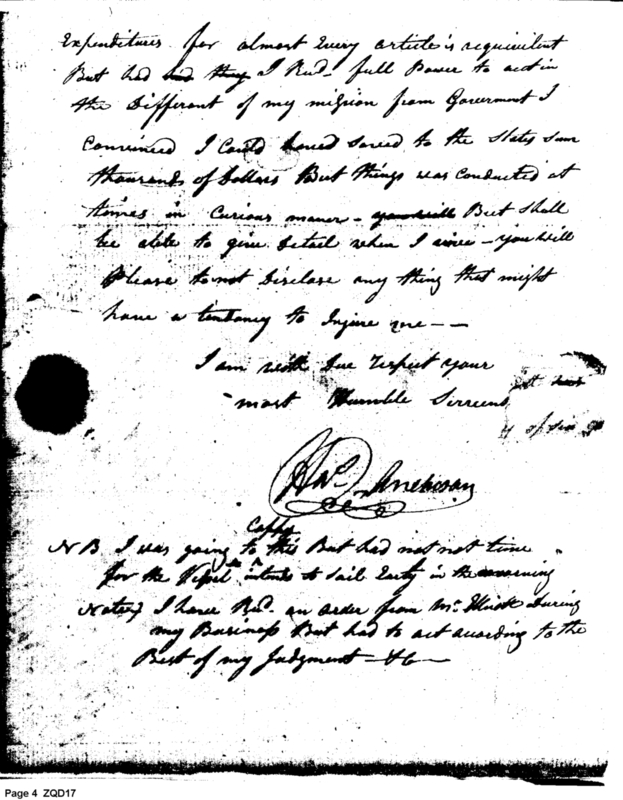 Expenditures for almost Every article is requiculent
But had had they I Rud. full Power to act in
the Different of my mission from Goverment I
Convinced I Could haved saved to the States sum
thousands of Dollars But things was conducted at
times in Curious maner - you will But Shall
be able to give Detail when I arive - you will
Please to not Disclose any thing that might
have a tendancy to Injure me - -
I am with Due respect your
most Humble Servent
Coppy
N B I was going to this But had not not time
for the Vessel intends to sail Early in the morning
I have Rud. an order from Mr. Elliott During
my Business But had to act according to the
Best of my Judgment - &c -
Page 4 ZQD17